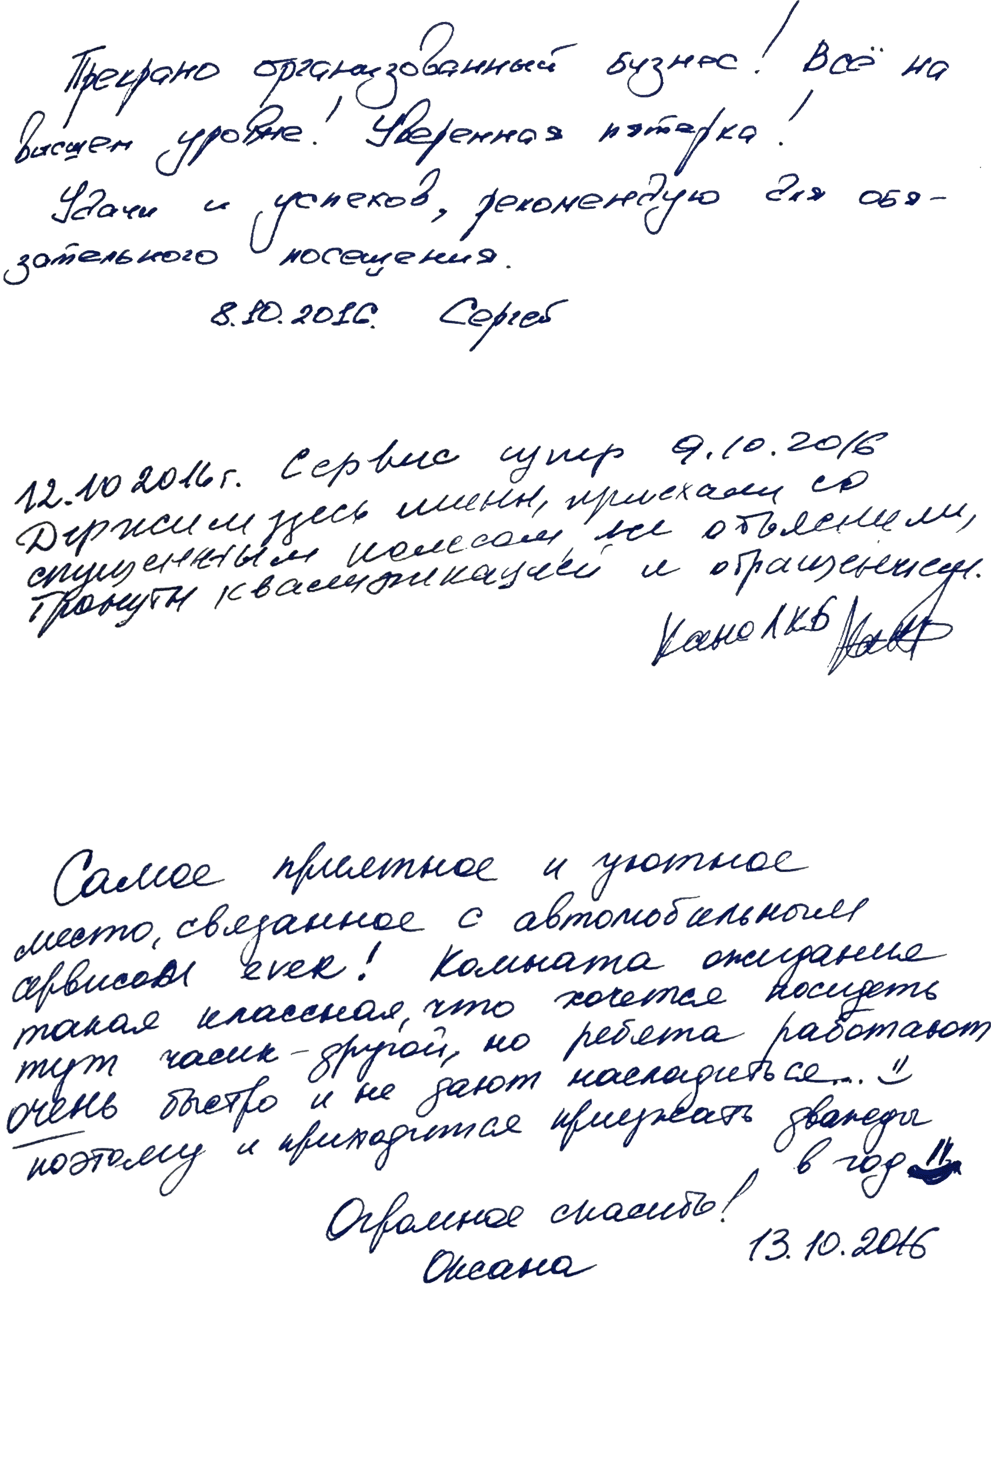 Прекрано организованный бизнес! Всё на
высшем уровне! Уверенная пятерка!
Удачи и успехов, рекомендую для обя-
зательного посещения.
8.10.2016. Сергей
12.10 2016 г. Сервис супер 9.10.2016
Держим здесь шины, приехали со
спущенным колесом, объяснили,
Тронуты квалификацией и обращением.
Самое приятное и уютное
место, связанное с автомобильным
сервисом ever! Комната ожидания
такая классная, что хочется посидеть
тут часик-другой, но ребята работают
очень быстро и не дают насладиться...
поэтому и приходится приезжать дважды
в год
Огромное спасибо!
Оксана 13.10.2016